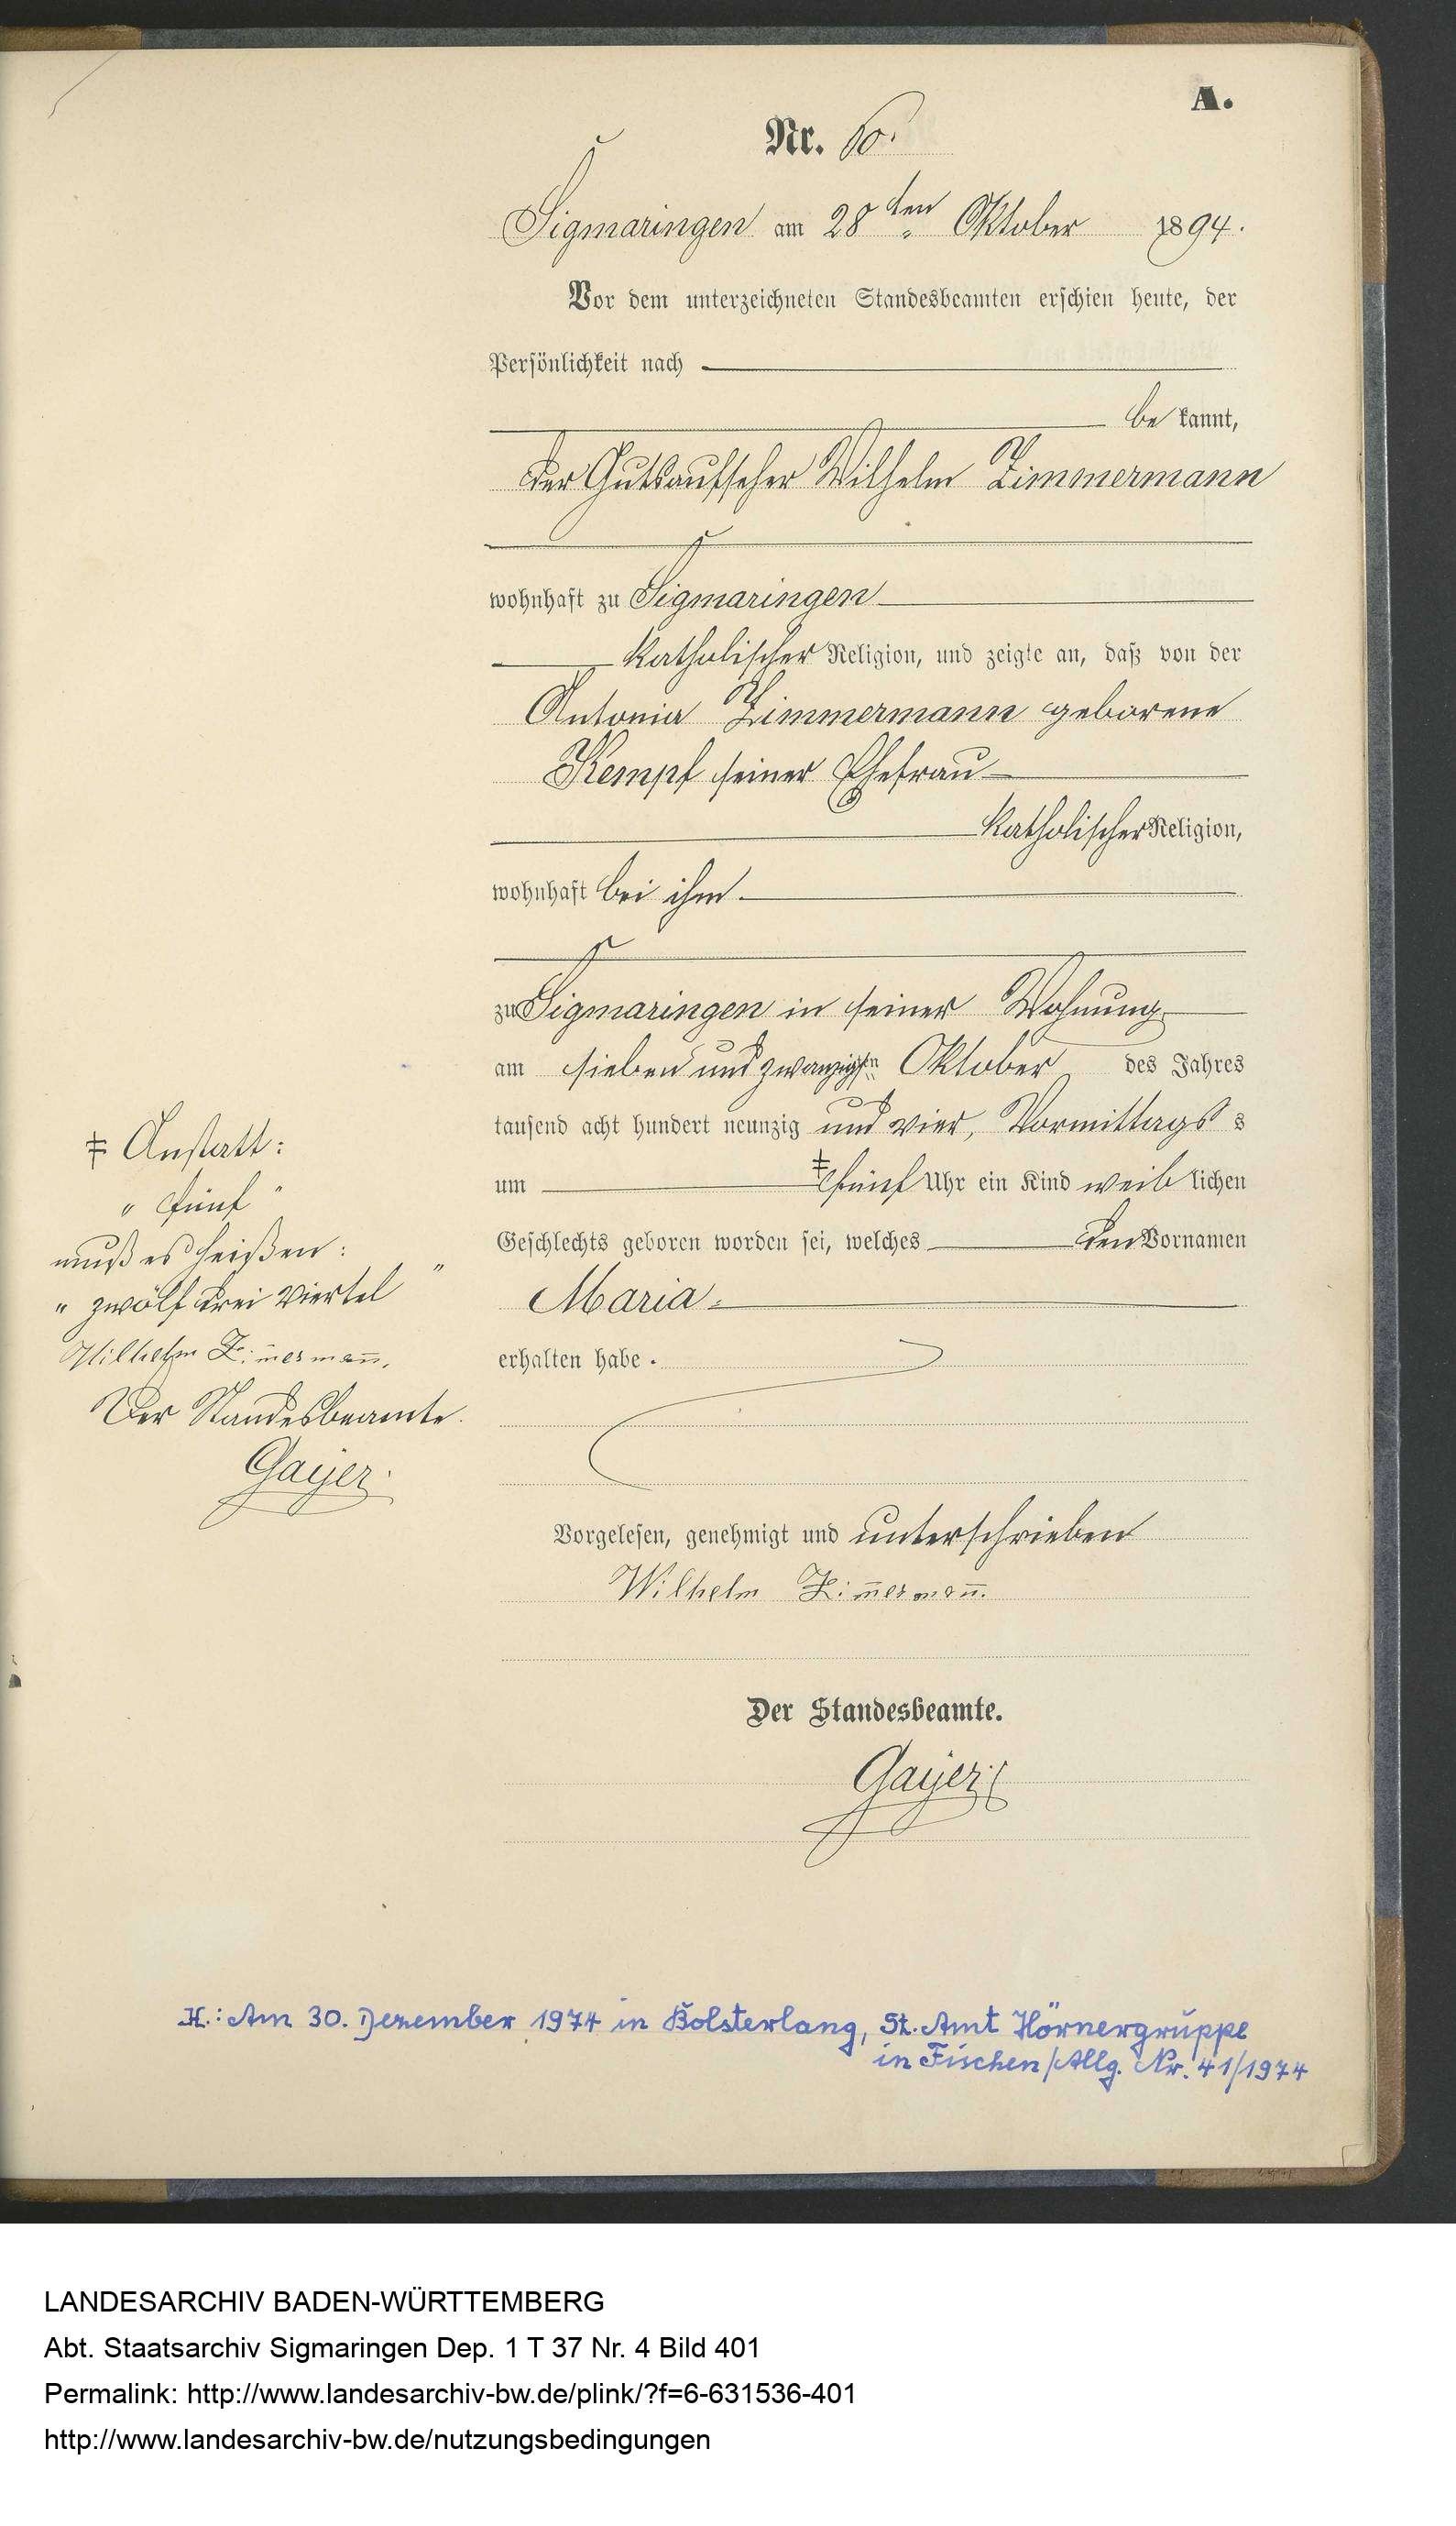 A.
Nr. 60.
Sigmaringen am 28ten Oktober 1894.
Vor dem unterzeichneten Standesbeamten erschien heute, der
Persönlichkeit nach
be kannt,
der Gutsaufseher Wilhelm Zimmermann
wohnhaft zu Sigmaringen
katholischer Religion, und zeigte an, daß von der
Antonia Zimmermann geborene
Kempf seiner Ehefrau
katholischer Religion,
wohnhaft bei ihm
zu Sigmaringen in seiner Wohnung
am sieben und zwanzigsten Oktober des Jahres
tausend acht hundert neunzig und vier, Vormittags s
um ‡ fünf Uhr ein Kind weib lichen
Geschlechts geboren worden sei, welches den Vornamen
Maria
erhalten habe.
Vorgelesen, genehmigt und unterschrieben
Wilhelm Zim̅erman̅.
Der Standesbeamte.
Gayer.
‡ Anstatt:
„ fünf "
muß es heißen:
„ zwölf drei Viertel "
Wilhelm Zim̅erman̅.
Der Standesbeamte.
Gayer.
H.: Am 30. Dezember 1974 in Bolsterlang, St. Amt Hörnergruppe
in Fischen/Allg. Nr. 41/1974
LANDESARCHIV BADEN-WÜRTTEMBERG
Abt. Staatsarchiv Sigmaringen Dep. 1 T 37 Nr. 4 Bild 401
Permalink: http://www.landesarchiv-bw.de/plink/?f=6-631536-401
http://www.landesarchiv-bw.de/nutzungsbedingungen